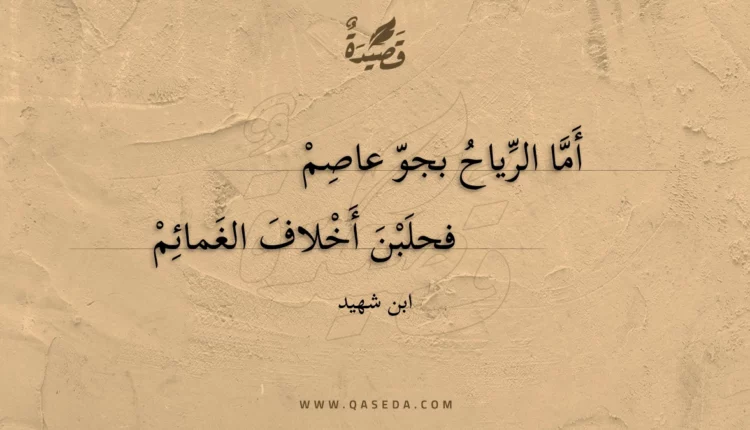 قَصِيْدَةٌ
أَمَّا الرِّياحُ بجوّ عاصِمْ
فحلَبْنَ أَخْلافَ الغَمائِمْ
ابن شهيد
WWW.QASEDA.COM